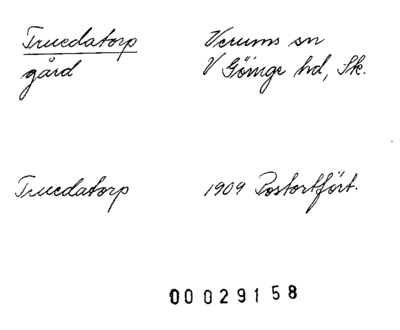 Truedatorp Verums sn
gård V Göinge hd, Sk.
Truedatorp 1909 Postortfört.
00 029158